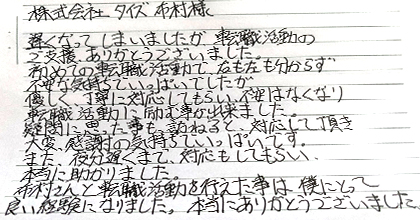 株式会社 タイズ 布村様
遅くなってしまいましたが、転職活動の
ご支援、ありがとうございました。
初めての転職活動で、右も左も分からず
不安な気持ちでいっぱいでしたが、
優しく、丁寧に対応してもらい、不安はなくなり
転職活動に励む事が出来ました。
疑問に思った事も、訪ねると、対応して頂き
大変、感謝の気持ちでいっぱいです。
また、夜分遅くまで、対応もしてもらい、
本当に助かりました。
布村さんと転職活動を行えた事は、僕にとって
良い経験になりました。本当にありがとうございました